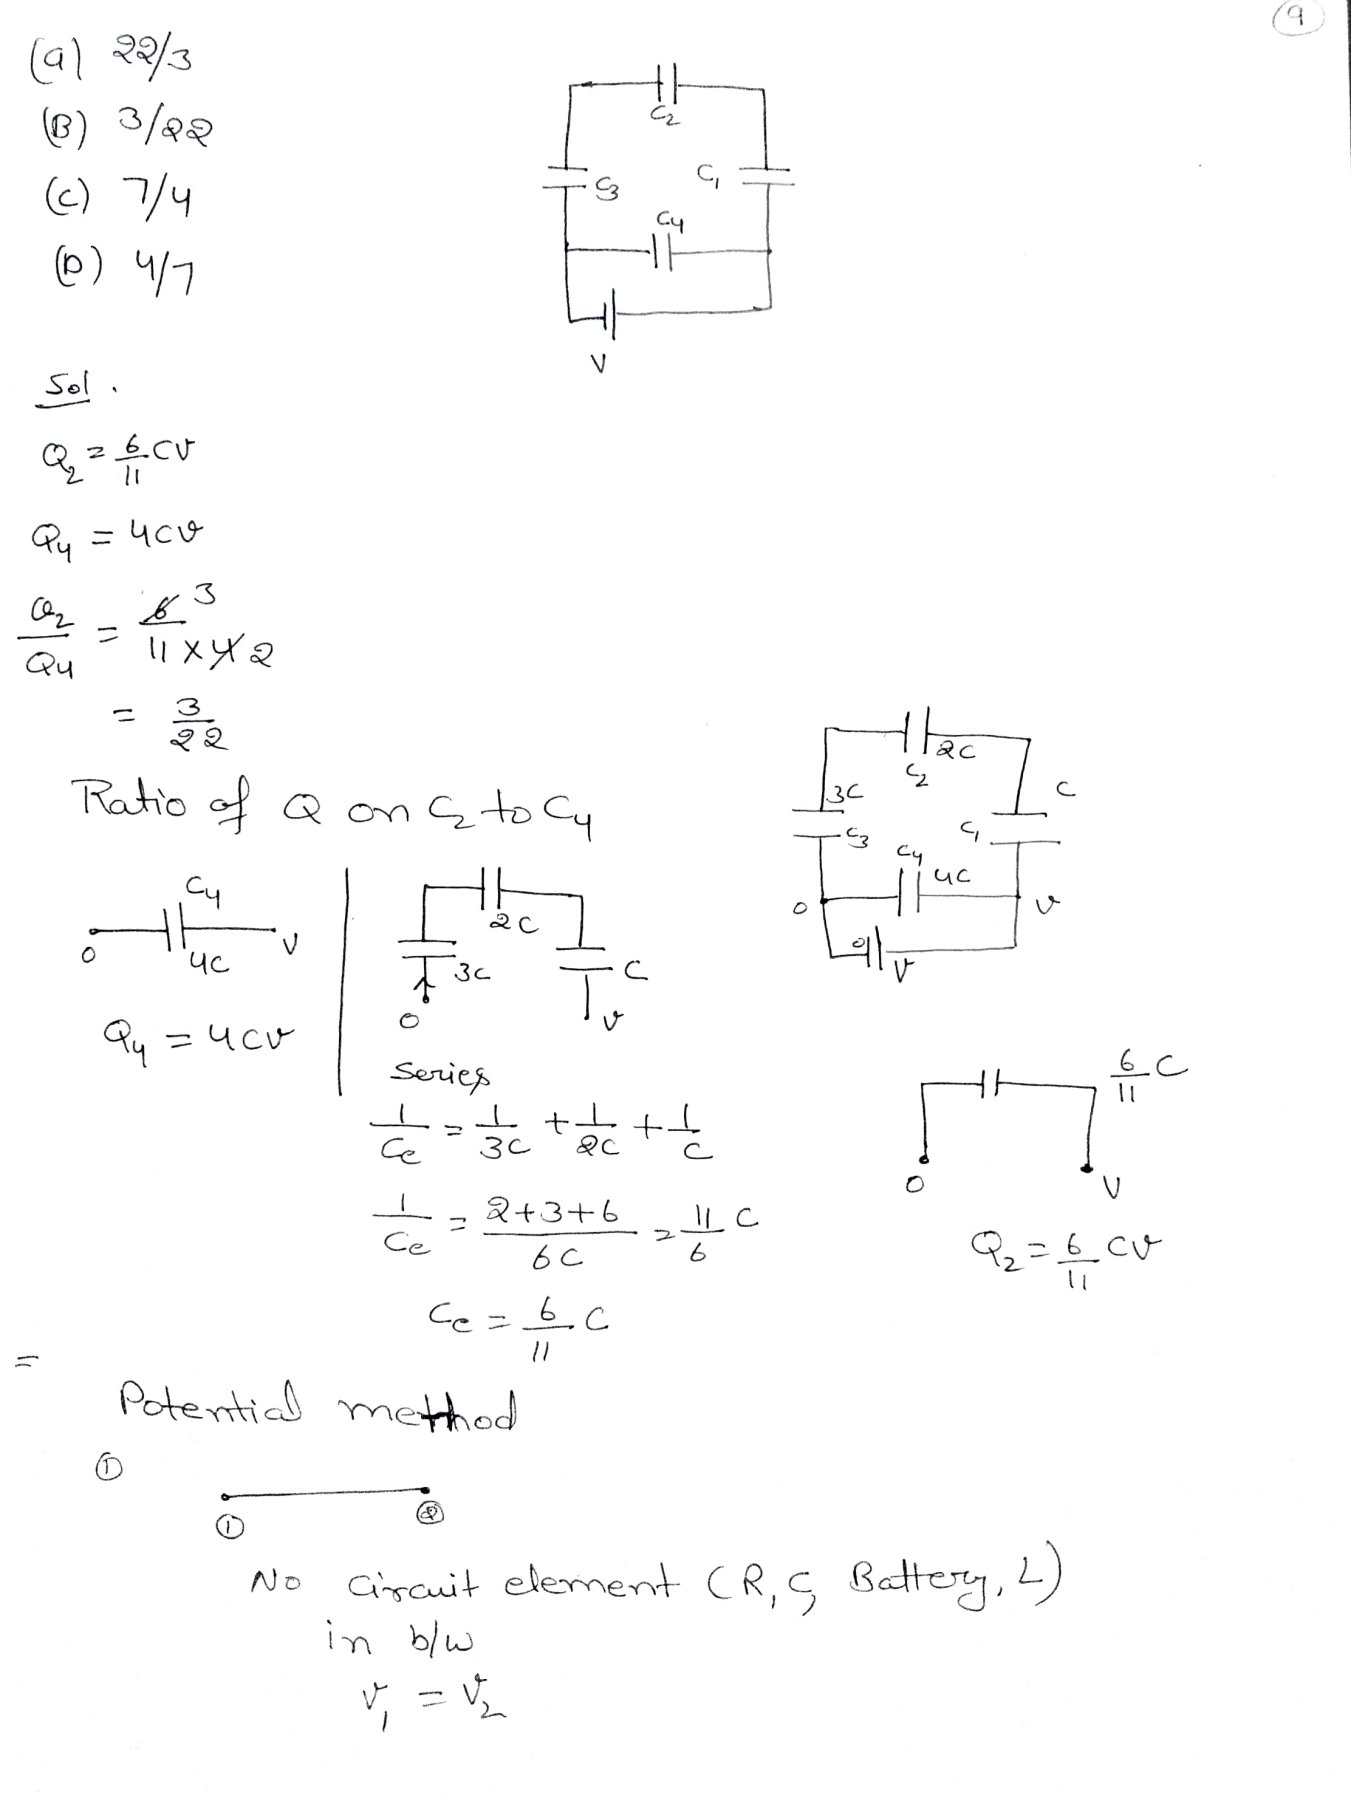 9
(a) 22/3
(B) 3/22
(C) 7/4
(D) 4/7
C2
C3
C1
C4
V
Sol.
Q2 = 6/11 CV
Q4 = 4CV
Q2/Q4 = 6 3 / 11 × 4 2
= 3/22
Ratio of Q on C2 to C4
2C
C2
3C
C3
C
C1
C4
4C
0
V
0
V
C4
0
4C
V
Q4 = 4CV
2C
3C
C
0
V
Series
1/Ce = 1/3C + 1/2C + 1/C
1/Ce = 2+3+6/6C = 11/6 C
Ce = 6/11 C
6/11 C
0
V
Q2 = 6/11 CV
=
Potential method
①
① ②
No circuit element (R, C, Battery, L)
in b/w
V1 = V2